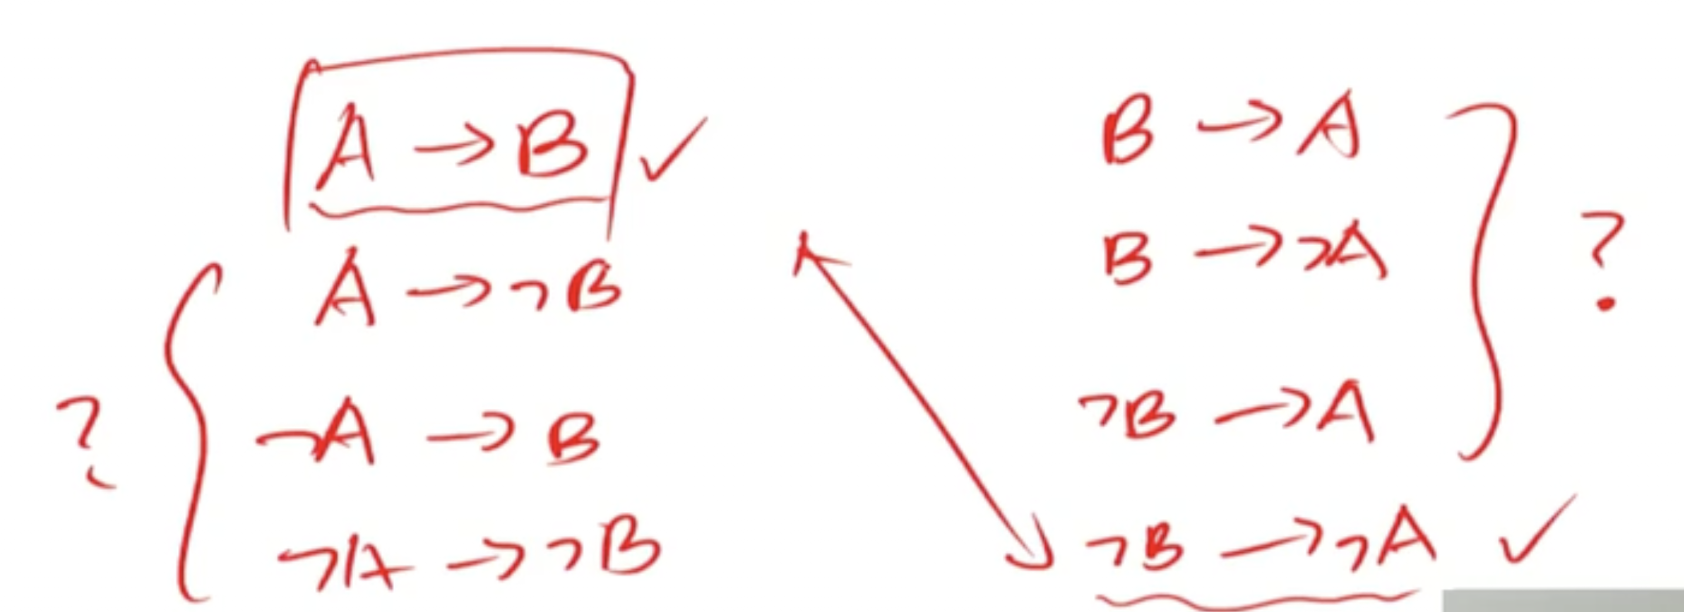 A → B ✓
A → ¬B
¬A → B
¬A → ¬B
?
B → A
B → ¬A
¬B → A
¬B → ¬A ✓
?